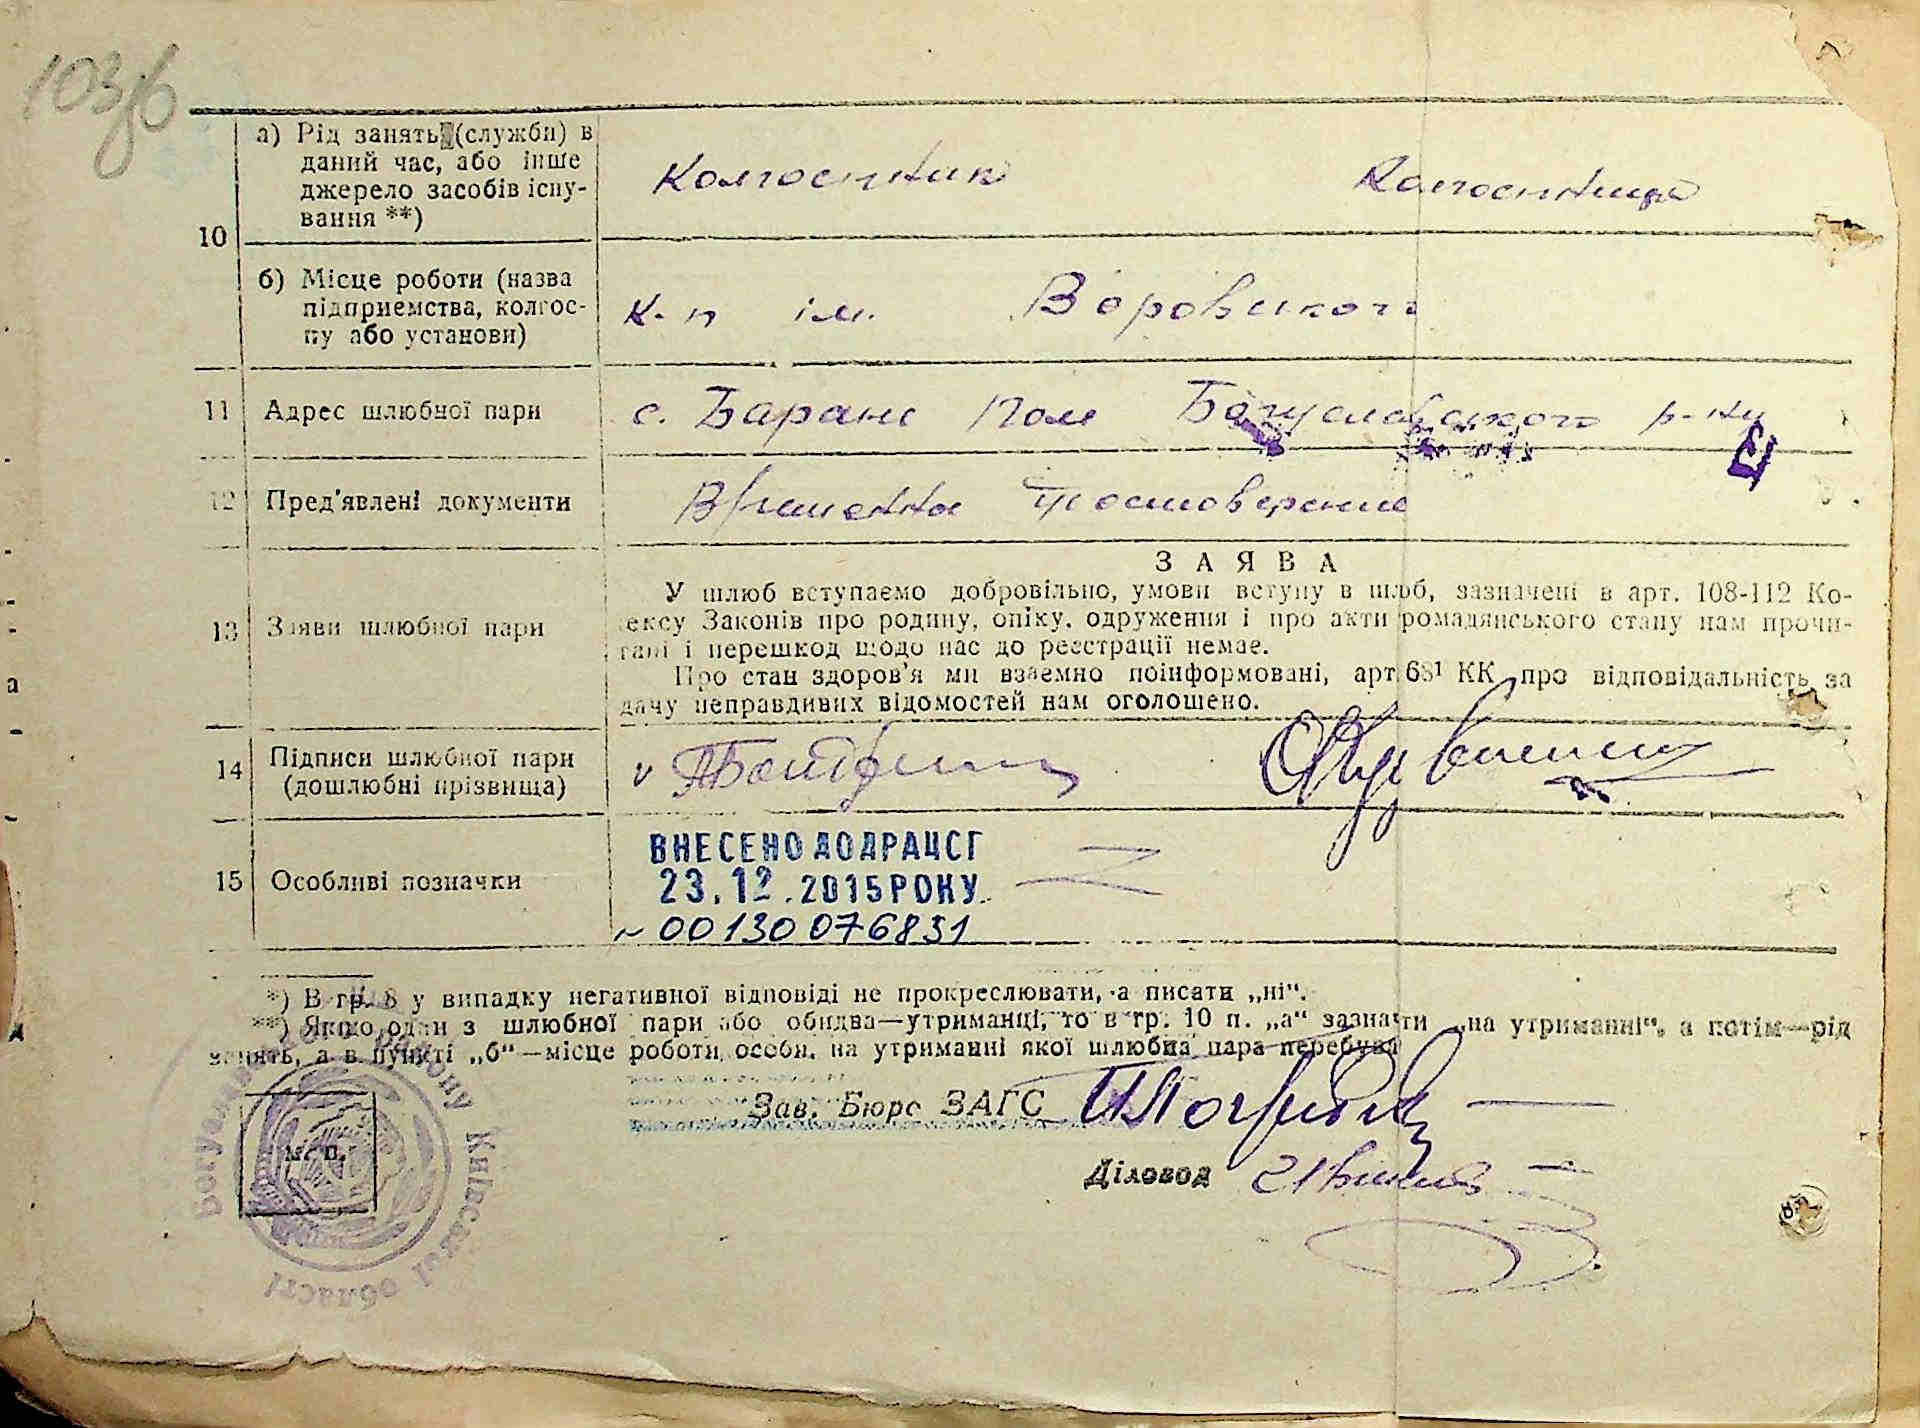 103/6
10
а) Рід занять (служби) в
даний час, або інше
джерело засобів існу-
вання **)
Колгоспник Колгоспниця
б) Місце роботи (назва
підприємства, колгос-
пу або установи)
К-п ім. Воровського
11 Адрес шлюбної пари
с. Баране Поле Богуславського р-ну
12 Пред'явлені документи
13 Заяви шлюбної пари
ЗАЯВА
У шлюб вступаємо добровільно, умови вступу в шлюб, зазначені в арт. 108-112 Ко-
ексу Законів про родину, опіку, одруження і про акти ромадянського стану нам прочи-
тані і перешкод щодо нас до реєстрації немає.
Про стан здоров'я ми взаємно поінформовані, арт. 68¹ КК про відповідальність за
дачу неправдивих відомостей нам оголошено.
14 Підписи шлюбної пари
(дошлюбні прізвища)
15 Особливі позначки
ВНЕСЕНО ДО ДРАЦСГ
23.12.2015 РОКУ
~ 00130076831
*) В гр. 8 у випадку негативної відповіді не прокреслювати, а писати „ні“.
**) Якщо один з шлюбної пари або обидва—утриманці, то в гр. 10 п. „а“ зазначити „на утриманні“, а потім—рід
занять, а в пункті „б“—місце роботи особи, на утриманні якої шлюбна пара перебуває
Зав. Бюро ЗАГС
м. п.
Діловод
Київської області